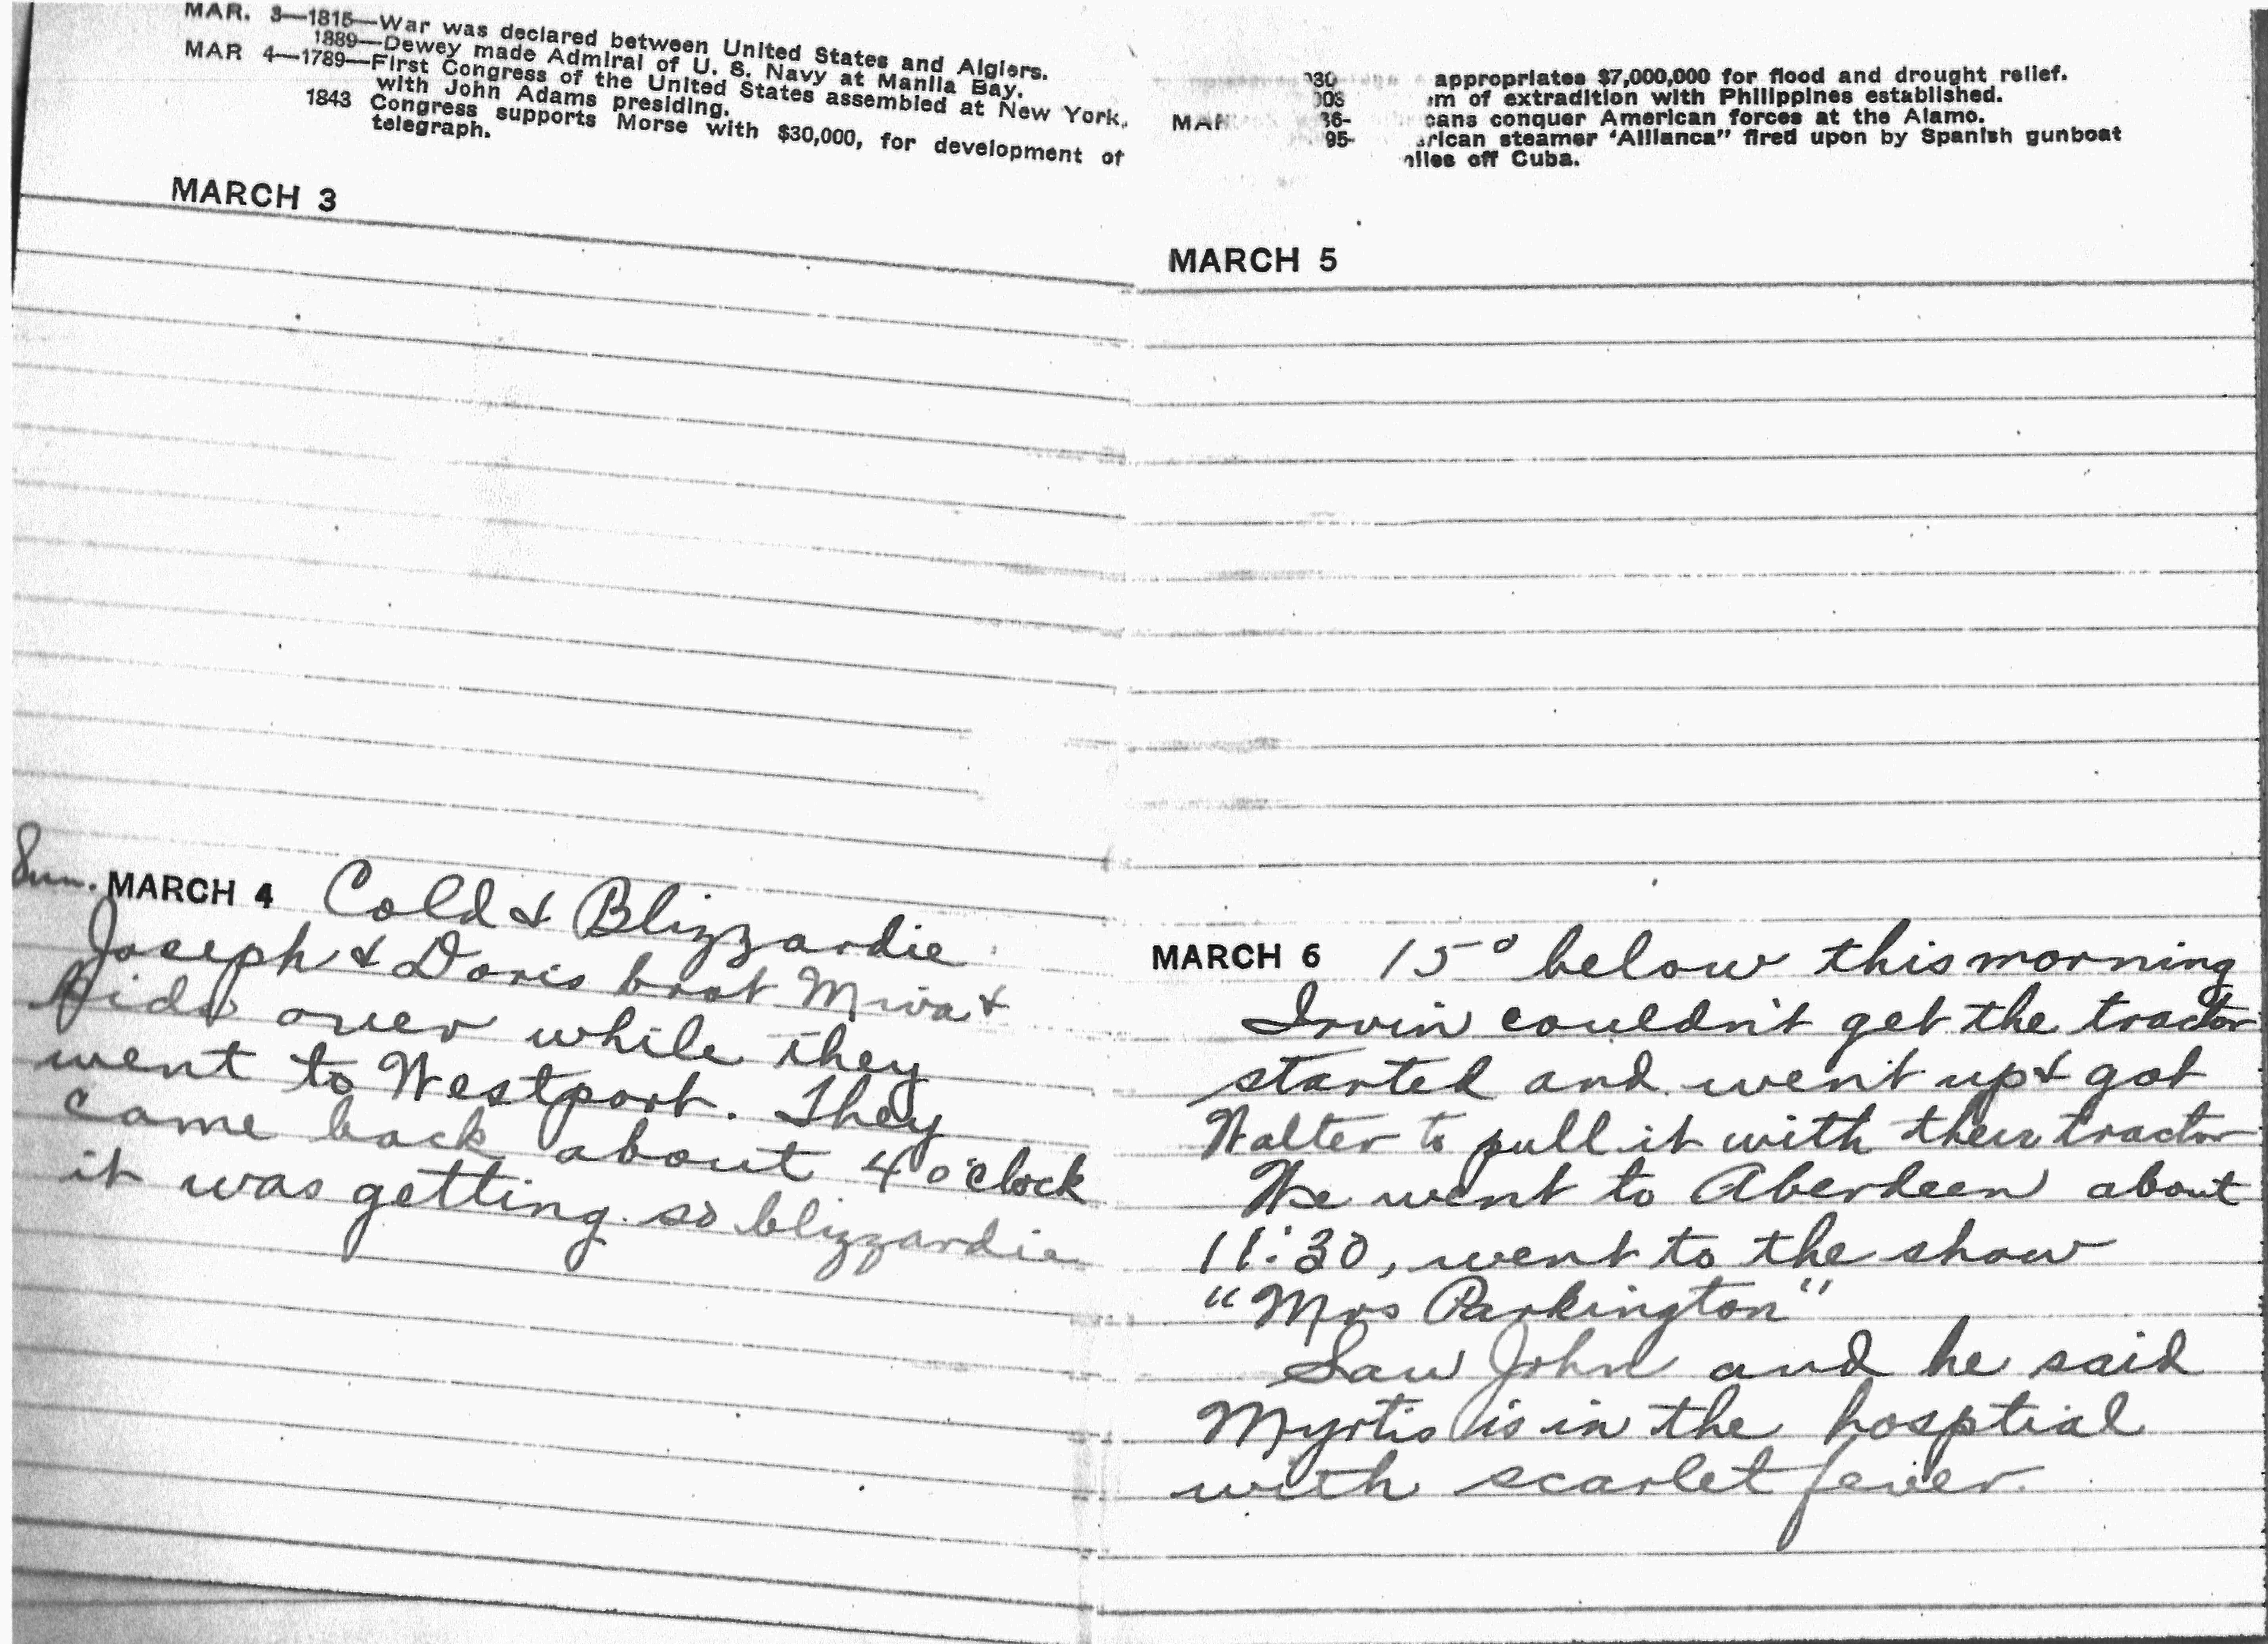 MAR. 3—1815—War was declared between United States and Algiers.
1889—Dewey made Admiral of U. S. Navy at Manila Bay.
MAR 4—1789—First Congress of the United States assembled at New York,
with John Adams presiding.
1843 Congress supports Morse with $30,000, for development of
telegraph.
MARCH 3
Sun. MARCH 4 Cold & Blizzardie
Joseph & Doris brot Miva &
over while they
went to Westport. They
came back about 4 o'clock
it was getting so blizzardie
appropriates $7,000,000 for flood and drought relief.
of extradition with Philippines established.
MAR 36- conquer American forces at the Alamo.
95- steamer "Allianca" fired upon by Spanish gunboat
off Cuba.
MARCH 5
MARCH 6 15° below this morning
Irvin couldn't get the tractor
started and went up & got
Walter to pull it with their tractor
We went to Aberdeen about
11:30, went to the show
"Mrs Parkington"
Saw John and he said
Myrtis is in the hosptial
with scarlet fever.